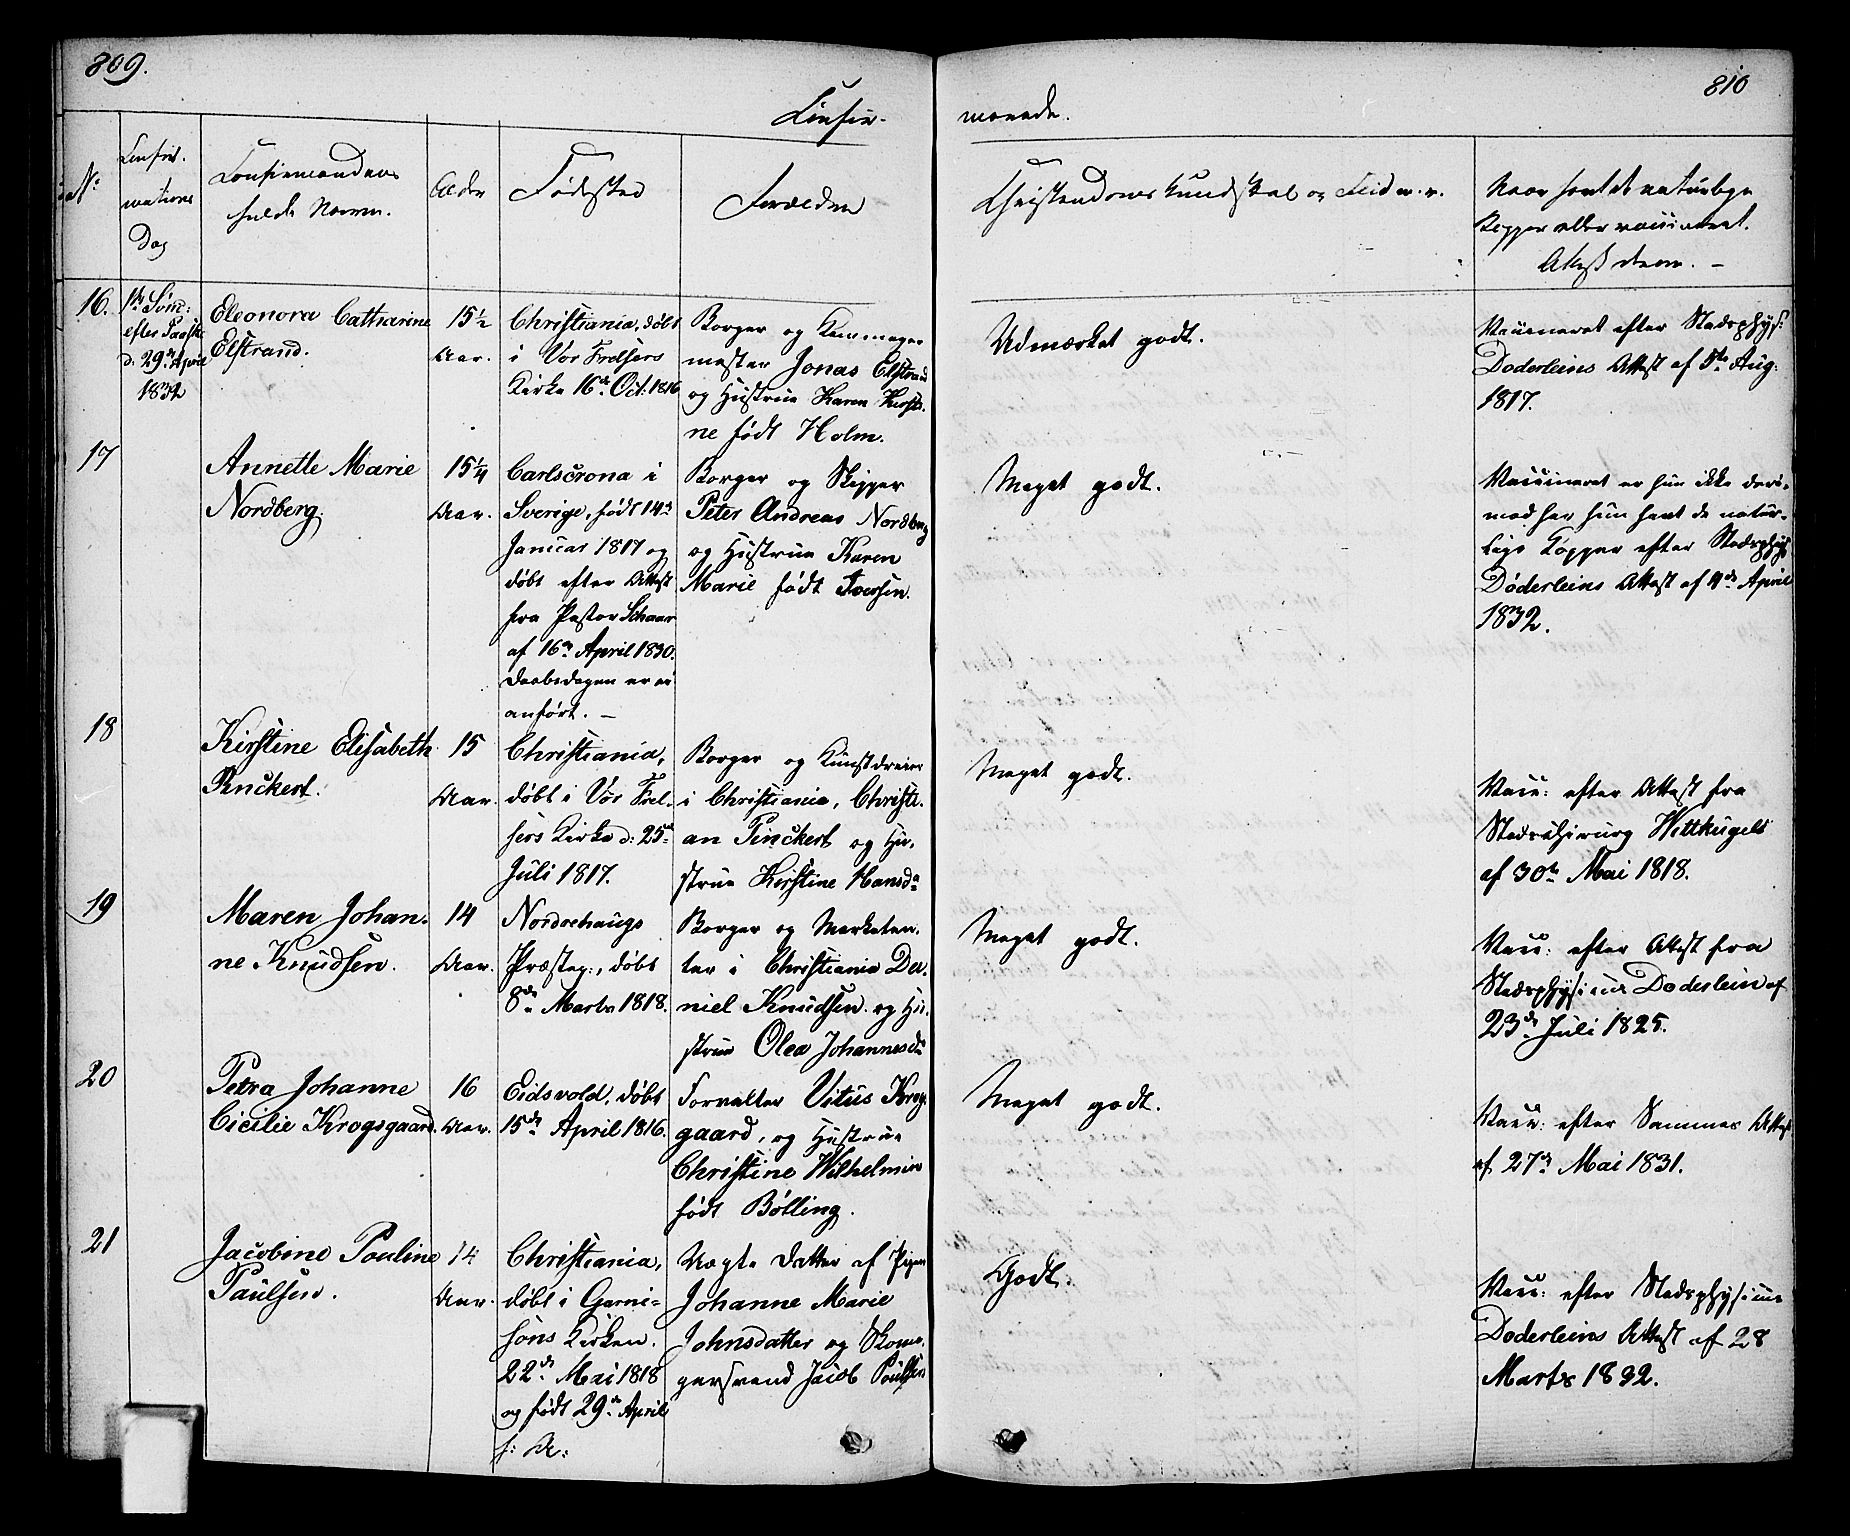 809.
810
Confir-
merede.
No
Confir-
mations
Dag
Confirmandens
fulde Navn.
Alder
Fødested
Forældre
Christendoms Kundskab og Flid m. v.
Naar havt de naturlige
Kopper eller vaccineret.
Attest derom. –
16.
1ste Sønd:
efter Paaske
d. 29de April
1832
Eleonora Catharine
Elstrand.
15 1/2
Aar.
Christiania, døbt
i Vor Frelsers
Kirke 16de Oct. 1816
Borger og Kammager
mester Jonas Elstrand
og Hustrue Karen Kirsti-
ne født Holm.
Udmærket godt.
Vaccineret efter Stadsphys:
Døderleins Attest af 5te Aug:
1817.
17
Annette Marie
Nordberg.
15 1/4
Aar.
Carlscrona i
Sverige, født 14de
Januar 1817 og
døbt efter Attest
fra Pastor Schaar
af 16de April 1830.
Daabsdagen er ei
anført. –
Borger og Skipper
Peter Andreas Nordberg
og Hustrue Karen
Marie født Iversen.
Meget godt.
Vaccineret er hun ikke deri-
mod har hun havt de natur-
lige Kopper efter Stadsphys
Døderleins Attest af 4de April
1832.
18
Kirstine Elisabeth
Pinckert.
15
Aar.
Christiania,
døbt i Vor Frel-
sers Kirke d: 25de
Juli 1817.
Borger og Kunstdreier
i Christiania, Christi-
an Pinckert og Hu-
strue Kirstine Hansda
Meget godt.
Vacc: efter Attest fra
Stadschirurg Wittkugels
af 30te Mai 1818.
19
Maren Johan-
ne Knudsen.
14
Aar.
Norderhaugs
Præsteg:, døbt
8de Marts 1818.
Borger og Marketen-
ter i Christiania Da-
niel Knudsen og Hu-
strue Olea Johannesda
Meget godt.
Vacc: efter Attest fra
Stadsphysicus Døderlein af
23de Juli 1825.
20
Petra Johanne
Cicilie Krogsgaard.
16
Aar.
Eidsvold, døbt
15de April 1816.
Forvalter Vitus Krog-
gaard, og Hustrue
Christine Wilhelmine
født Bølling.
Meget godt.
Vacc: efter Sammes Attest
af 27de Mai 1831.
21
Jacobine Pauline
Paulsen.
14
Aar.
Christiania,
døbt i Garni-
sons Kirken.
22de Mai 1818
og født 29de April
s: A:
Uægte Datter af Pigen
Johanne Marie
Johnsdatter og Skoma-
gersvend Jacob Paulsen
Godt.
Vacc: efter Stadsphysicus
Døderleins Attest af 28
Marts 1832.